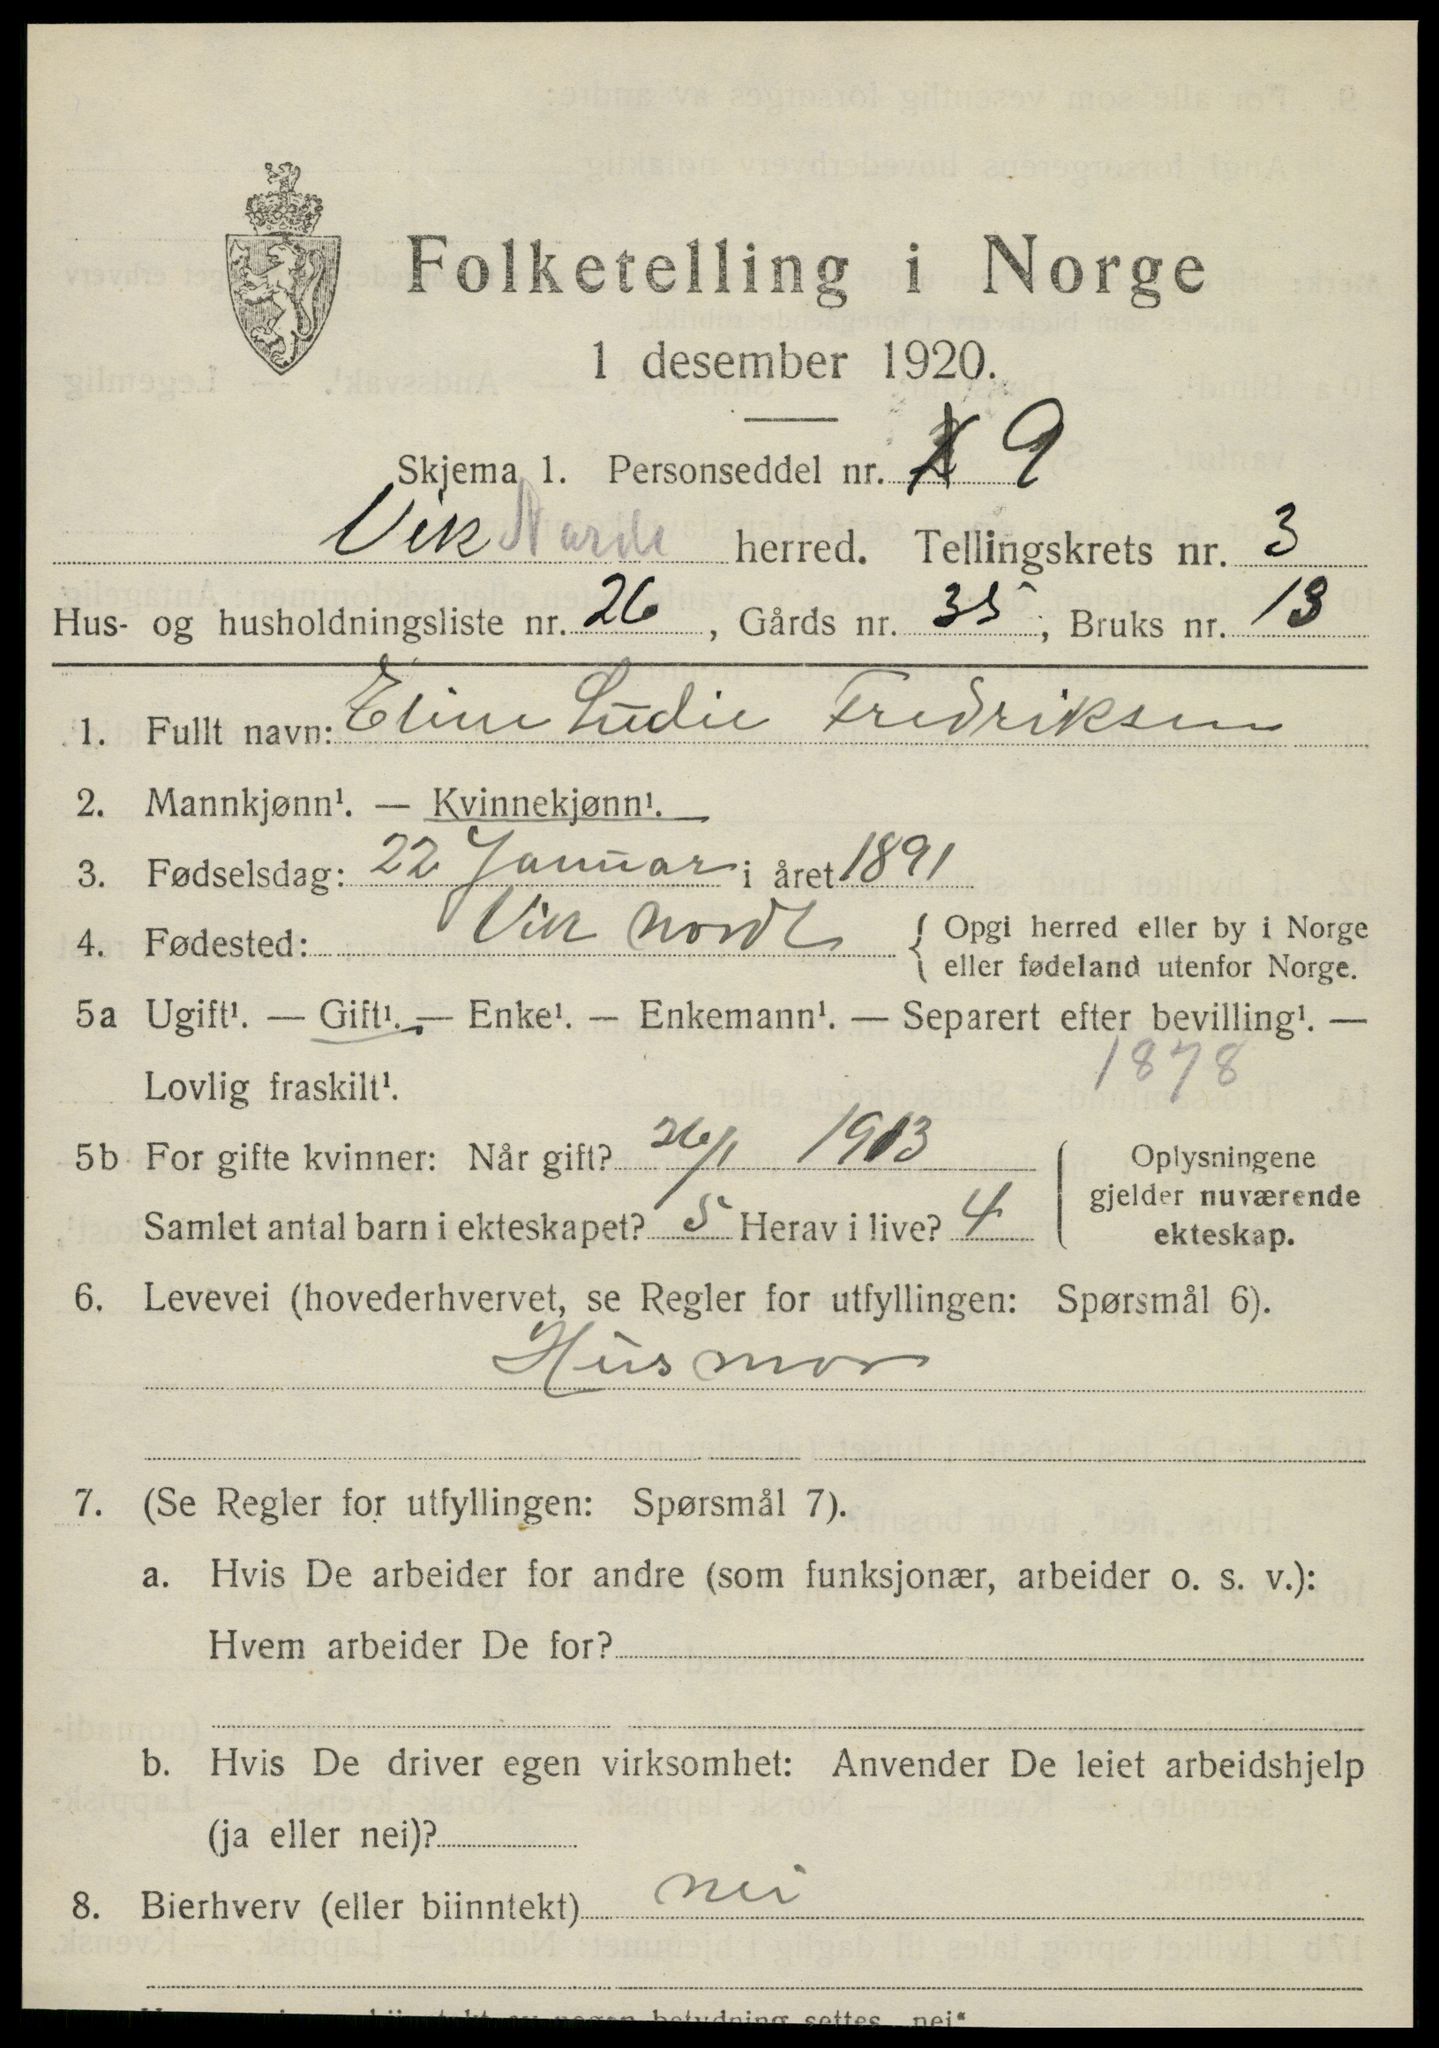 Folketelling i Norge
1 desember 1920.
Skjema 1. Personseddel nr. 9
Vik herred. Tellingskrets nr. 3
Hus- og husholdningsliste nr. 26, Gårds nr. 35, Bruks nr. 13
1. Fullt navn: Eline Ludie Fredriksen
2. Mannkjønn¹. — Kvinnekjønn¹.
3. Fødselsdag: 22 Januar i året 1891
4. Fødested: Vik Nordl { Opgi herred eller by i Norge
eller fødeland utenfor Norge.
5a Ugift¹. — Gift¹. — Enke¹. — Enkemann¹. — Separert efter bevilling¹. —
1878
Lovlig fraskilt¹.
5b For gifte kvinner: Når gift? 26/1 1913
Samlet antal barn i ekteskapet? 5 Herav i live? 4
Oplysningene
gjelder nuværende
ekteskap.
6. Levevei (hovederhvervet, se Regler for utfyllingen: Spørsmål 6).
Husmor
7. (Se Regler for utfyllingen: Spørsmål 7).
a. Hvis De arbeider for andre (som funksjonær, arbeider o. s. v.):
Hvem arbeider De for?
b. Hvis De driver egen virksomhet: Anvender De leiet arbeidshjelp
(ja eller nei)?
8. Bierhverv (eller biinntekt) nei